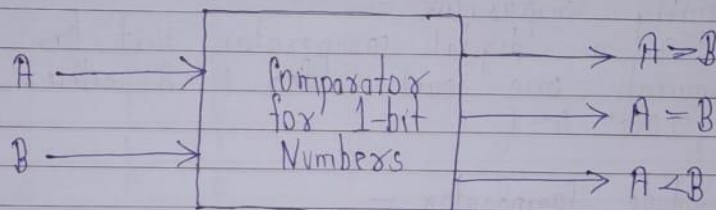 A
B
Comparator
for 1-bit
Numbers
A > B
A = B
A < B